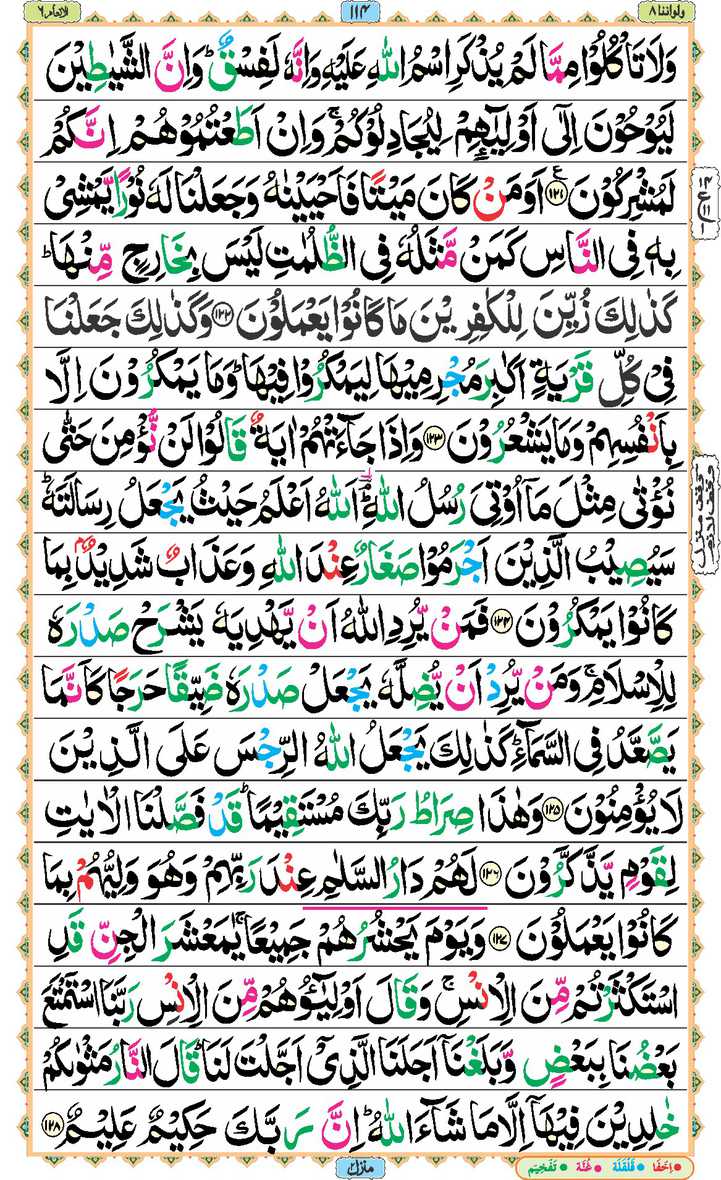 ولواننا ٨
١١٤
الانعام ٦
وَلَا تَاۡكُلُوۡا مِمَّا لَمۡ يُذۡكَرِ اسۡمُ اللّٰهِ عَلَيۡهِ وَاِنَّهٗ لَفِسۡقٌ ؕ وَاِنَّ الشَّيٰطِيۡنَ
لَيُوۡحُوۡنَ اِلٰٓى اَوۡلِيٰٓـئِهِمۡ لِيُجَادِلُوۡكُمۡ ۚ وَاِنۡ اَطَعۡتُمُوۡهُمۡ اِنَّكُمۡ
لَمُشۡرِكُوۡنَ ﴿۱۲۱﴾ اَوَمَنۡ كَانَ مَيۡتًا فَاَحۡيَيۡنٰهُ وَجَعَلۡنَا لَهٗ نُوۡرًا يَّمۡشِىۡ
بِهٖ فِى النَّاسِ كَمَنۡ مَّثَلُهٗ فِى الظُّلُمٰتِ لَيۡسَ بِخَارِجٍ مِّنۡهَا ؕ
كَذٰلِكَ زُيِّنَ لِلۡكٰفِرِيۡنَ مَا كَانُوۡا يَعۡمَلُوۡنَ ﴿۱۲۲﴾ وَكَذٰلِكَ جَعَلۡنَا
فِىۡ كُلِّ قَرۡيَةٍ اَكٰبِرَ مُجۡرِمِيۡهَا لِيَمۡكُرُوۡا فِيۡهَا ؕ وَمَا يَمۡكُرُوۡنَ اِلَّا
بِاَنۡفُسِهِمۡ وَمَا يَشۡعُرُوۡنَ ﴿۱۲۳﴾ وَاِذَا جَآءَتۡهُمۡ اٰيَةٌ قَالُوۡا لَنۡ نُّؤۡمِنَ حَتّٰى
نُؤۡتٰى مِثۡلَ مَاۤ اُوۡتِىَ رُسُلُ اللّٰهِ ؔۘؕ اَللّٰهُ اَعۡلَمُ حَيۡثُ يَجۡعَلُ رِسَالَتَهٗ ؕ
سَيُصِيۡبُ الَّذِيۡنَ اَجۡرَمُوۡا صَغَارٌ عِنۡدَ اللّٰهِ وَعَذَابٌ شَدِيۡدٌۢ بِمَا
كَانُوۡا يَمۡكُرُوۡنَ ﴿۱۲۴﴾ فَمَنۡ يُّرِدِ اللّٰهُ اَنۡ يَّهۡدِيَهٗ يَشۡرَحۡ صَدۡرَهٗ
لِلۡاِسۡلَامِ ۚ وَمَنۡ يُّرِدۡ اَنۡ يُّضِلَّهٗ يَجۡعَلۡ صَدۡرَهٗ ضَيِّقًا حَرَجًا كَاَنَّمَا
يَصَّعَّدُ فِى السَّمَآءِ ؕ كَذٰلِكَ يَجۡعَلُ اللّٰهُ الرِّجۡسَ عَلَى الَّذِيۡنَ
لَا يُؤۡمِنُوۡنَ ﴿۱۲۵﴾ وَهٰذَا صِرَاطُ رَبِّكَ مُسۡتَقِيۡمًا ؕ قَدۡ فَصَّلۡنَا الۡاٰيٰتِ
لِقَوۡمٍ يَّذَّكَّرُوۡنَ ﴿۱۲۶﴾ لَهُمۡ دَارُ السَّلٰمِ عِنۡدَ رَبِّهِمۡ وَهُوَ وَلِيُّهُمۡ بِمَا
كَانُوۡا يَعۡمَلُوۡنَ ﴿۱۲۷﴾ وَيَوۡمَ يَحۡشُرُهُمۡ جَمِيۡعًا ۚ يٰمَعۡشَرَ الۡجِنِّ قَدِ
اسۡتَكۡثَرۡتُمۡ مِّنَ الۡاِنۡسِ ۚ وَقَالَ اَوۡلِيٰٓـؤُهُمۡ مِّنَ الۡاِنۡسِ رَبَّنَا اسۡتَمۡتَعَ
بَعۡضُنَا بِبَعۡضٍ وَّبَلَغۡنَاۤ اَجَلَنَا الَّذِىۡۤ اَجَّلۡتَ لَنَا ؕ قَالَ النَّارُ مَثۡوٰٮكُمۡ
خٰلِدِيۡنَ فِيۡهَاۤ اِلَّا مَا شَآءَ اللّٰهُ ؕ اِنَّ رَبَّكَ حَكِيۡمٌ عَلِيۡمٌ ﴿۱۲۸﴾
منزل ٢
اِخفَا قَلْقَلَة غُنَّة تَفْخِيْم